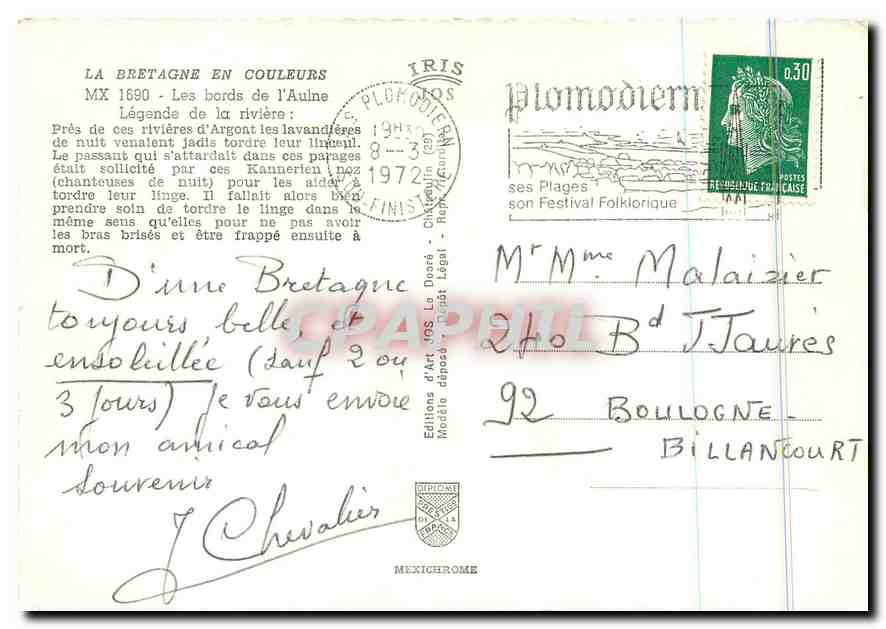 LA BRETAGNE EN COULEURS
MX 1690 - Les bords de l'Aulne
Légende de la rivière :
Près de ces rivières d'Argont les lavandières
de nuit venaient jadis tordre leur linceul.
Le passant qui s'attardait dans ces parages
était sollicité par ces Kannerien noz
(chanteuses de nuit) pour les aider à
tordre leur linge. Il fallait alors bien
prendre soin de tordre le linge dans le
même sens qu'elles pour ne pas avoir
les bras brisés et être frappé ensuite à
mort.
D'une Bretagne
toujours belle, et
ensoleillée (sauf 2 ou
3 jours) je vous envoie
mon amical
souvenir
J Chevalier
IRIS
JOS
PLOMODIERN
8--3
1972
FINISTERE
Editions d'Art JOS Le Doaré - Châteaulin (29)
Modèle déposé - Dépôt Légal - Repr. Interdite
DIPLOME
PRESTIGE
DE LA
FRANCE
MEXICHROME
Plomodiern
ses Plages
son Festival Folklorique
0,30
POSTES
REPUBLIQUE FRANÇAISE
Mr Mme Malaizier
240 Bd J Jaurès
92 BOULOGNE-
BILLANCOURT
CPAPHIL